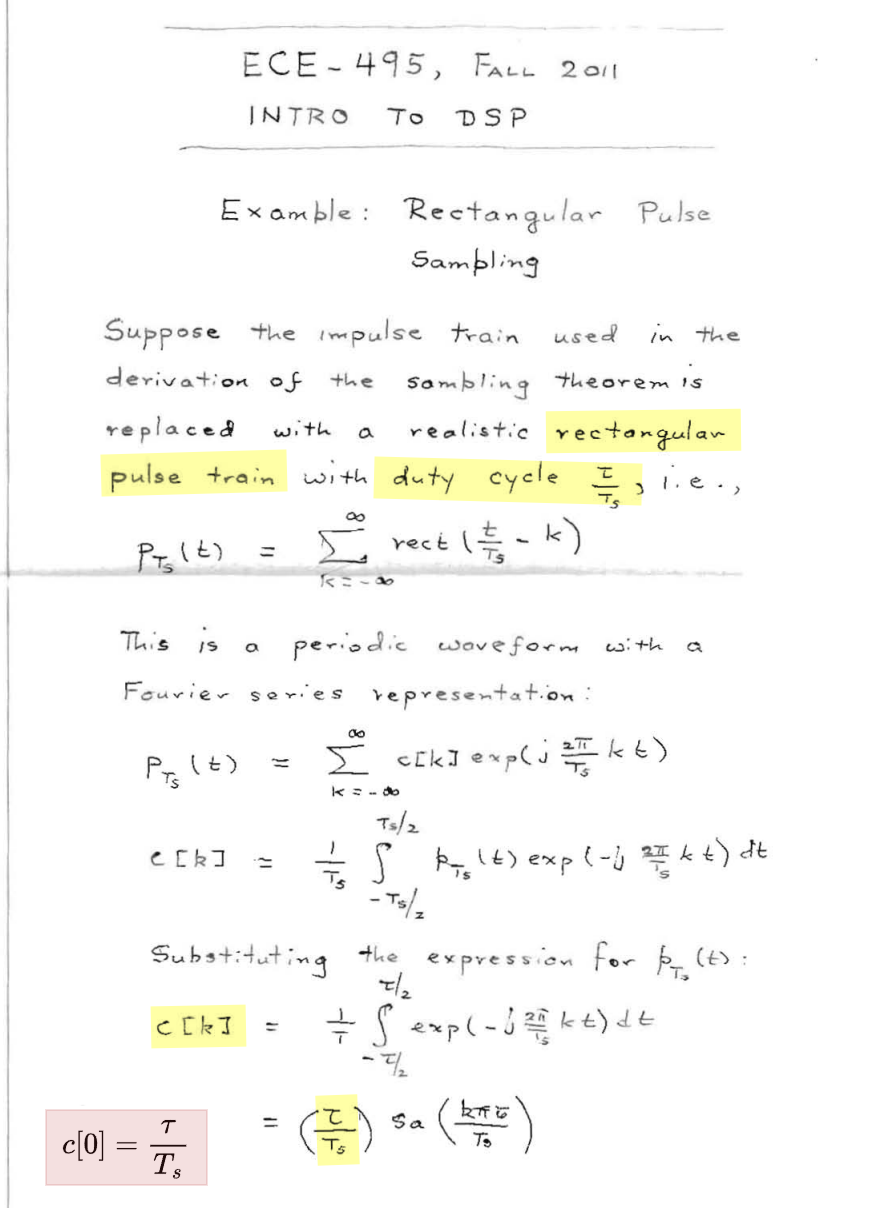 ECE-495, FALL 2011
INTRO TO DSP
Example: Rectangular Pulse
Sampling
Suppose the impulse train used in the
derivation of the sampling theorem is
replaced with a realistic rectangular
pulse train with duty cycle τ/Ts, i.e.,
pTs(t) = Σ_{k=-∞}^{∞} rect(t/Ts - k)
This is a periodic waveform with a
Fourier series representation:
pTs(t) = Σ_{k=-∞}^{∞} c[k] exp(j 2π/Ts k t)
c[k] = 1/Ts ∫_{-Ts/2}^{Ts/2} pTs(t) exp(-j 2π/Ts k t) dt
Substituting the expression for pTs(t):
c[k] = 1/T ∫_{-τ/2}^{τ/2} exp(-j 2π/Ts k t) dt
= (τ/Ts) Sa(kπτ/Ts)
c[0] = τ/Ts